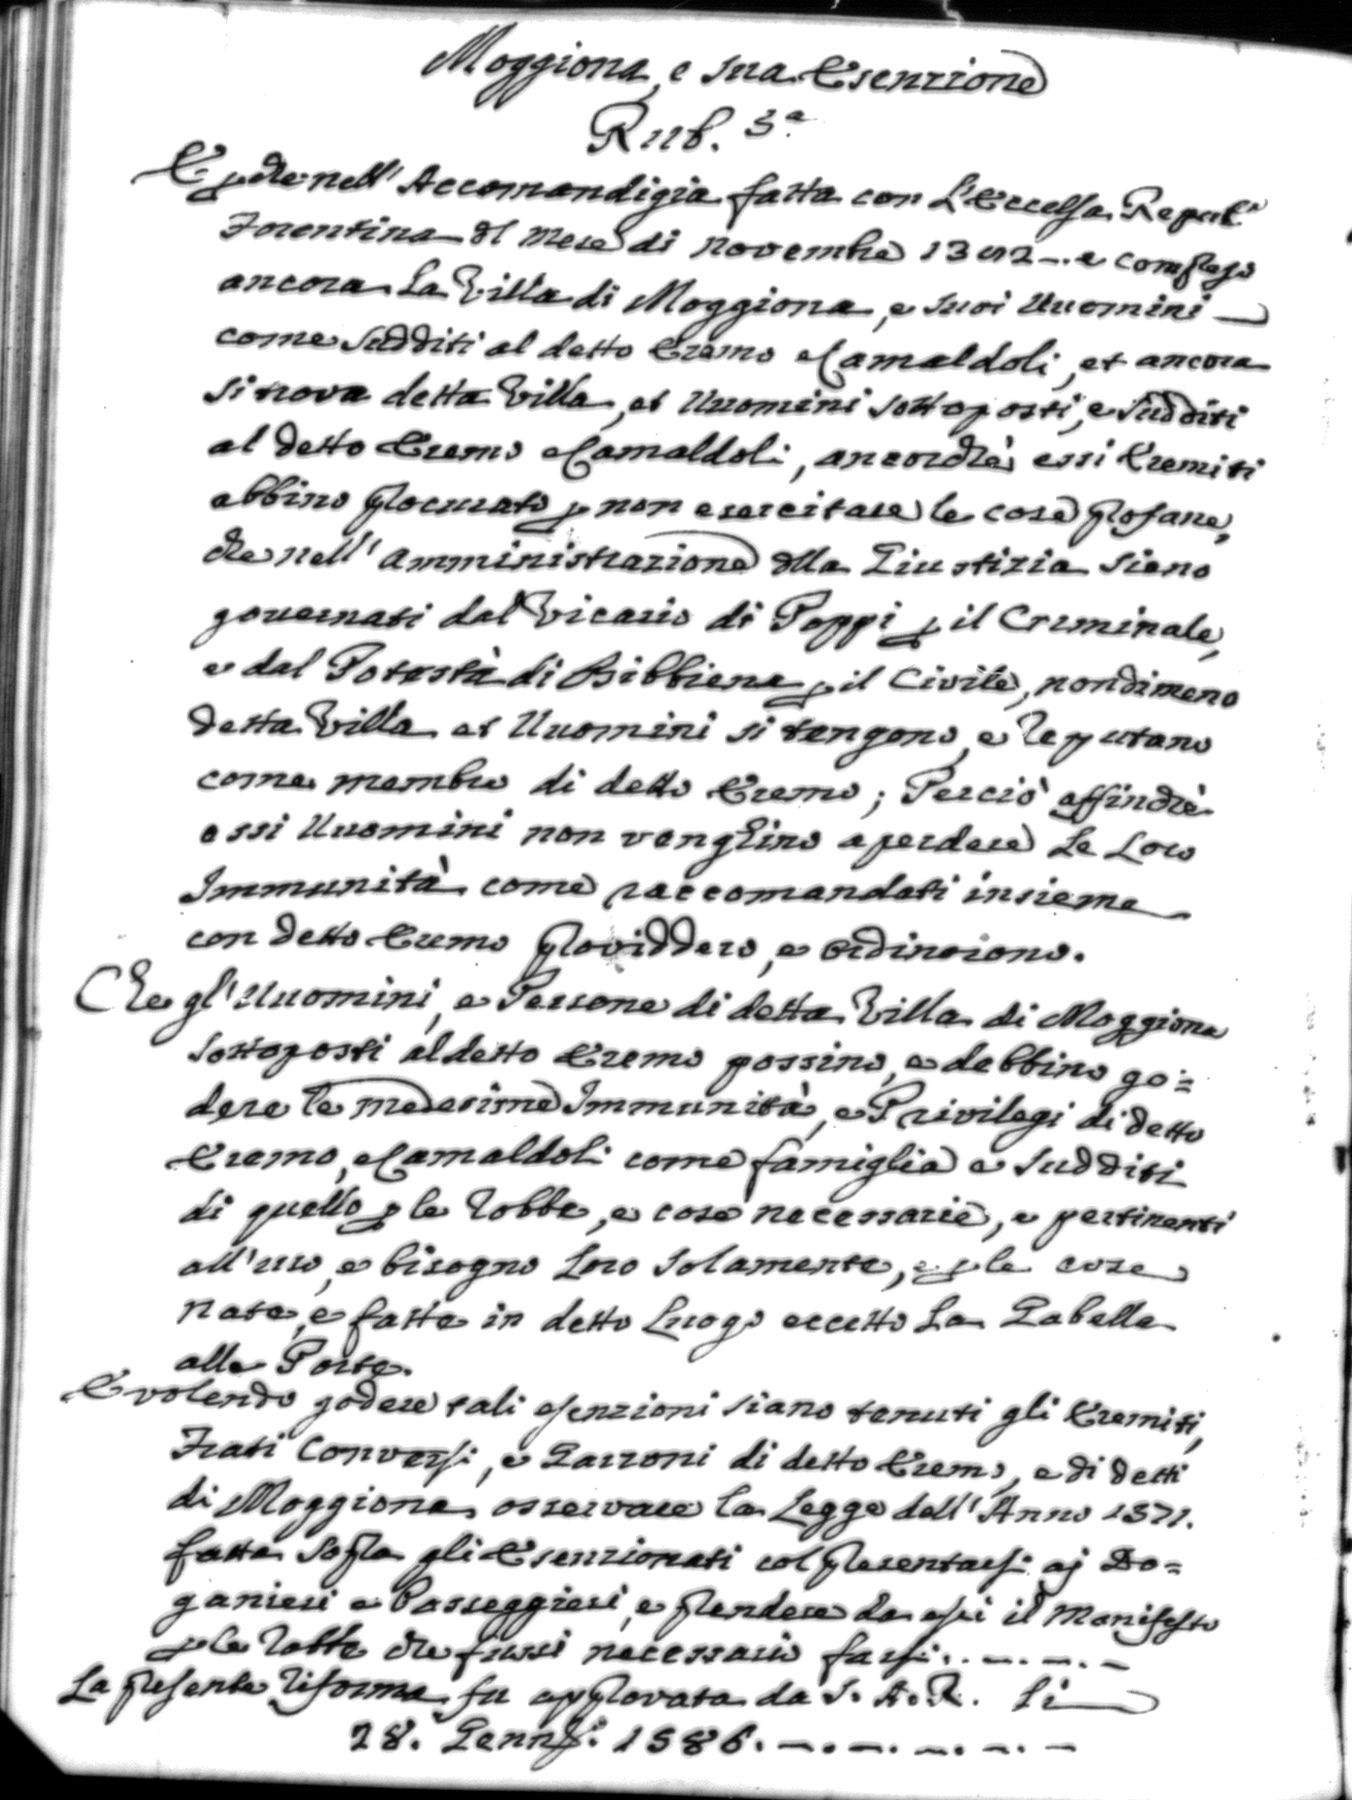 Moggiona, e sua Esenzione
Rub. 3.a
E p che nell' Accomandigia fatta con L'Eccelsa Repub.a
Fiorentina del Mese di Novembre 13 e compreso
ancora La Villa di Moggiona, e suoi Uuomini
come Sudditi al detto Eremo e Camaldoli, et ancora
si trova detta Villa, et Uuomini sottoposti, e Sudditi
al detto Eremo e Camaldoli, ancorche essi Eremiti
abbino procurato p non esercitare le cose profane,
che nell' Amministrazione della Giustizia siano
governati dal Vicario di Poppi p il Criminale,
e dal Potestà di Bibbiena p il Civile, nondimeno
detta Villa et Uuomini si tengono, e reputano
come membro di detto Eremo; Perciò affinchè
essi Uuomini non venghino a perdere Le Loro
Immunità come raccomandati insieme
con detto Eremo providdero, e ordinorono.
Che gl' Uuomini, e Persone di detta Villa di Moggiona
sottoposti al detto Eremo possino, e debbino go=
dere le medesime Immunità, e Privilegi di detto
Eremo, e Camaldoli come famiglia e Sudditi
di quello p le robbe, e cose necessarie, e pertinenti
all' uso, e bisogno Loro solamente, e p le cose
nate, e fatte in detto Luogo eccetto La Gabella
alle Porte.
E volendo godere tali esenzioni siano tenuti gli Eremiti,
Frati Conversi, e Garzoni di detto Eremo, e di detti
di Moggiona osservare la Legge dell' Anno 1571.
fatta sopra gli Esenzionati col presentarsi aj Do=
ganieri e Passeggieri, e prendere da essi il Manifesto
p le robbe che fussi necessario farsi.
La presente riforma fu approvata da S. A. R. Li
28. Genn.o 1586.